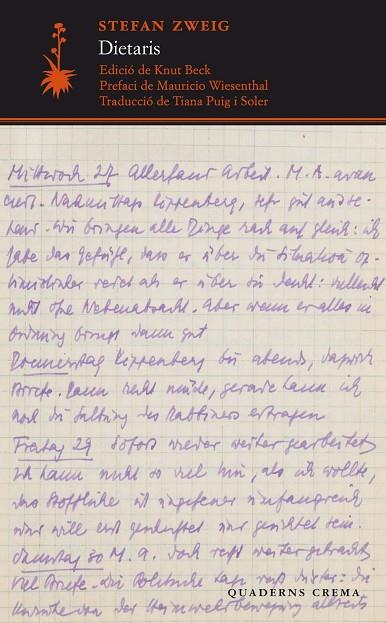 STEFAN ZWEIG
Dietaris
Edició de Knut Beck
Prefaci de Mauricio Wiesenthal
Traducció de Tiana Puig i Soler
Mittwoch 27 Allerhand Arbeit. M. A. avan
ciert. Nachmittags Kippenberg, sehr gut und se-
Wir bringen alle Dinge rasch auf gleich: ich
habe das Gefühl, dass er über die Situation op-
timistischer redet als er über sie denkt: vielleicht
nicht ohne Nebenabsicht. Aber wenn er alles in
Ordnung bringt dann gut
Donnerstag Kippenberg bis abends, dazwischen
Briefe. Dann recht müde, gerade kann ich
noch die des Rabbiners ertragen
Freitag 29 Sofort wieder weiter gearbeitet
ich kann nicht so viel hin, als ich wollte,
das Stoffliche ist ungeheuer umfangreich
und will erst und gesichtet sein.
Samstag 30 M. A. doch recht weiter gebracht
Viel Briefe. Die Politische Lage recht düster: die
der Heimwehrbewegung
QUADERNS CREMA